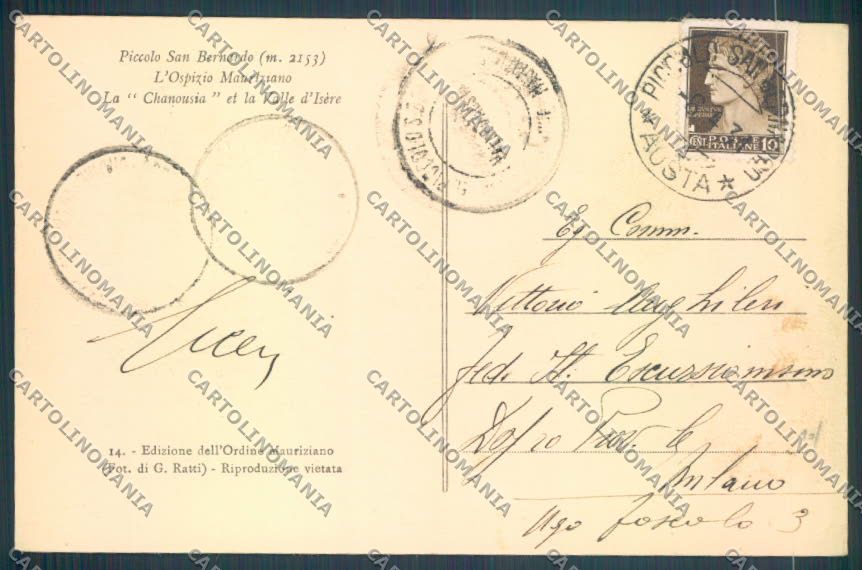 Piccolo San Bernardo (m. 2153)
L'Ospizio Mauriziano
La “ Chanousia ” et la Valle d'Isère
PICCOLO SAN BERNARDO
* AOSTA *
POSTE
ITALIANE
CENT. 10
Eg. Comm.
Vittorio Anghileri
Fed. It. Escursionismo
Dopo Prov. le
Milano
Ugo Foscolo 3
14. - Edizione dell'Ordine Mauriziano
(Fot. di G. Ratti) - Riproduzione vietata
CARTOLINOMANIA